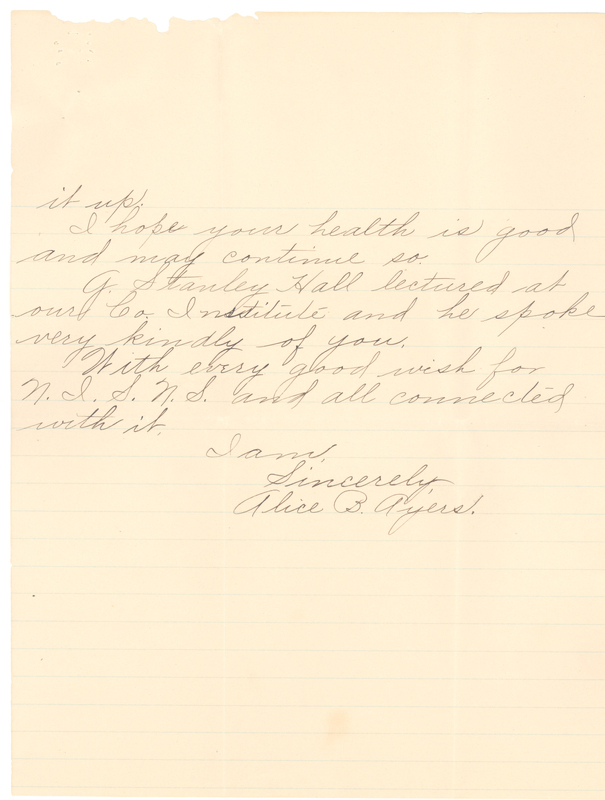 it up.
I hope your health is good
and may continue so.
G. Stanley Hall lectured at
our Co. Institute and he spoke
very kindly of you.
With every good wish for
N. I. S. N. S. and all connected
with it,
I am,
Sincerely
Alice B. Ayers.